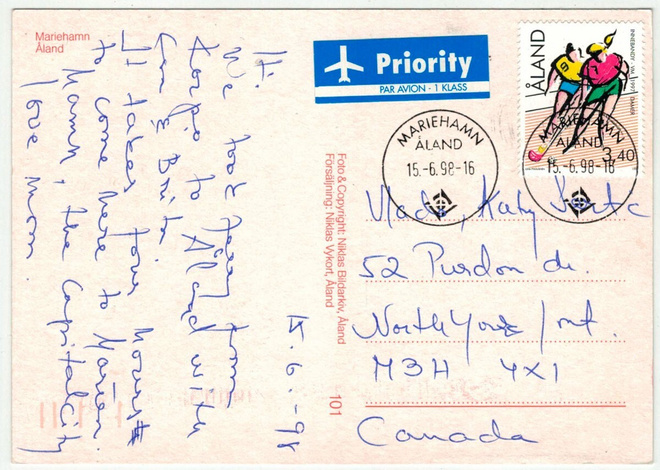 Mariehamn
Åland
Priority
PAR AVION - 1 KLASS
ÅLAND
INNEBANDY - VM 1997 DAMER
3,40
MARIEHAMN
ÅLAND
15.-6.98-16
MARIEHAMN
ÅLAND
15.-6.98-16
15.6.-98
Hi.
We took ferry from
to Åland with
&
It takes four hours
to come here to Marian.
Hamn, the Capital City
love Mom.
Foto & Copyright: Niklas Bildarkiv, Åland
Försäljning: Niklas Vykort, Åland
101
Vlado, Katy
52 Purdon dr.
North York / Ont.
M3H 4X1
Canada